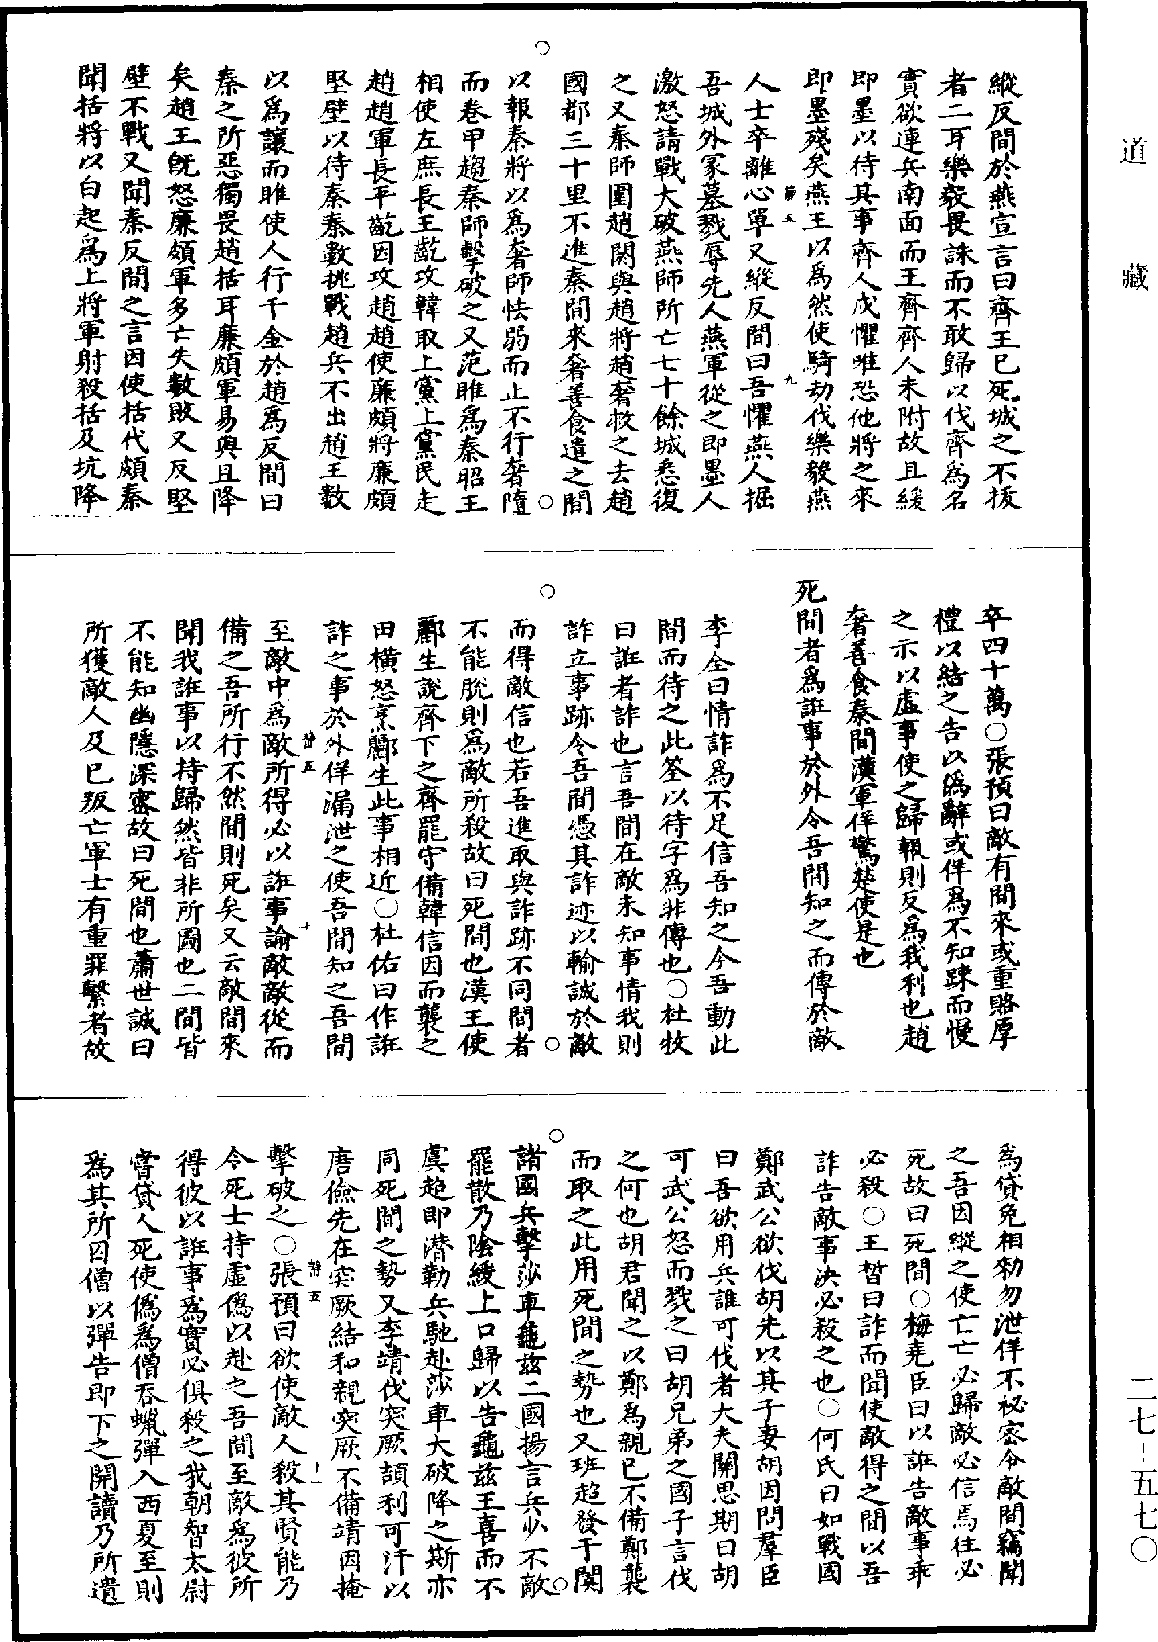 道藏
縱反間於燕宣言曰齊王已死城之不拔
者二耳樂毅畏誅而不敢歸以伐齊爲名
實欲連兵南面而王齊齊人未附故且緩
即墨以待其事齊人戍懼唯恐他將之來
即墨殘矣燕王以爲然使騎劫伐樂毅燕
靜五
九
人士卒離心單又縱反間曰吾懼燕人掘
吾城外冢墓戮辱先人燕軍從之即墨人
激怒請戰大破燕師所亡七十餘城悉復
之又秦師圍趙閼與趙將趙奢救之去趙
國都三十里不進秦間來奢善食遣之間
以報秦將以爲奢師怯弱而止不行奢隨
而卷甲趨秦師擊破之又范雎爲秦昭王
相使左庶長王齕攻韓取上黨上黨民走
趙趙軍長平齕因攻趙趙使廉頗將廉頗
堅壁以待秦秦數挑戰趙兵不出趙王數
以爲讓而雎使人行千金於趙爲反間曰
秦之所惡獨畏趙括耳廉頗軍易與且降
矣趙王旣怒廉頗軍多亡失數敗又反堅
壁不戰又聞秦反間之言因使括代頗秦
聞括將以白起爲上將軍射殺括及坑降
卒四十萬○張預曰敵有間來或重賂厚
禮以結之告以僞辭或佯爲不知踈而慢
之示以虛事使之歸報則反爲我利也趙
奢善食秦間漢軍佯驚楚使是也
死間者爲誑事於外令吾間知之而傳於敵
李全曰情詐爲不足信吾知之今吾動此
間而待之此筌以待字爲非傳也○杜牧
曰誑者詐也言吾間在敵未知事情我則
詐立事跡令吾間憑其詐迹以輸誠於敵
而得敵信也若吾進取與詐跡不同間者
不能脫則爲敵所殺故曰死間也漢王使
酈生說齊下之齊罷守備韓信因而襲之
田橫怒烹酈生此事相近○杜佑曰作誑
詐之事於外佯漏泄之使吾間知之吾間
靜五
十
至敵中爲敵所得必以誑事諭敵敵從而
備之吾所行不然間則死矣又云敵間來
聞我誑事以持歸然皆非所圖也二間皆
不能知幽隱深密故曰死間也蕭世諴曰
所獲敵人及已叛亡軍士有重罪繫者故
爲貸免相勑勿泄佯不祕密令敵間竊聞
之吾因縱之使亡亡必歸敵必信焉往必
死故曰死間○梅堯臣曰以誑告敵事乖
必殺○王晳曰詐而聞使敵得之間以吾
詐告敵事決必殺之也○何氏曰如戰國
鄭武公欲伐胡先以其子妻胡因問羣臣
曰吾欲用兵誰可伐者大夫關思期曰胡
可武公怒而戮之曰胡兄弟之國子言伐
之何也胡君聞之以鄭爲親已不備鄭襲
而取之此用死間之勢也又班超發于闐
諸國兵擊莎車龜茲二國揚言兵少不敵
罷散乃陰緩上口歸以告龜茲王喜而不
虞超即潛勒兵馳赴莎車大破降之斯亦
同死間之勢又李靖伐突厥頡利可汗以
唐儉先在突厥結和親突厥不備靖因掩
靜五
十一
擊破之○張預曰欲使敵人殺其賢能乃
令死士持虛僞以赴之吾間至敵爲彼所
得彼以誑事爲實必俱殺之我朝智太尉
嘗貸人死使僞爲僧吞蠟彈入西夏至則
爲其所囚僧以彈告即下之開讀乃所遺
二七-五七〇